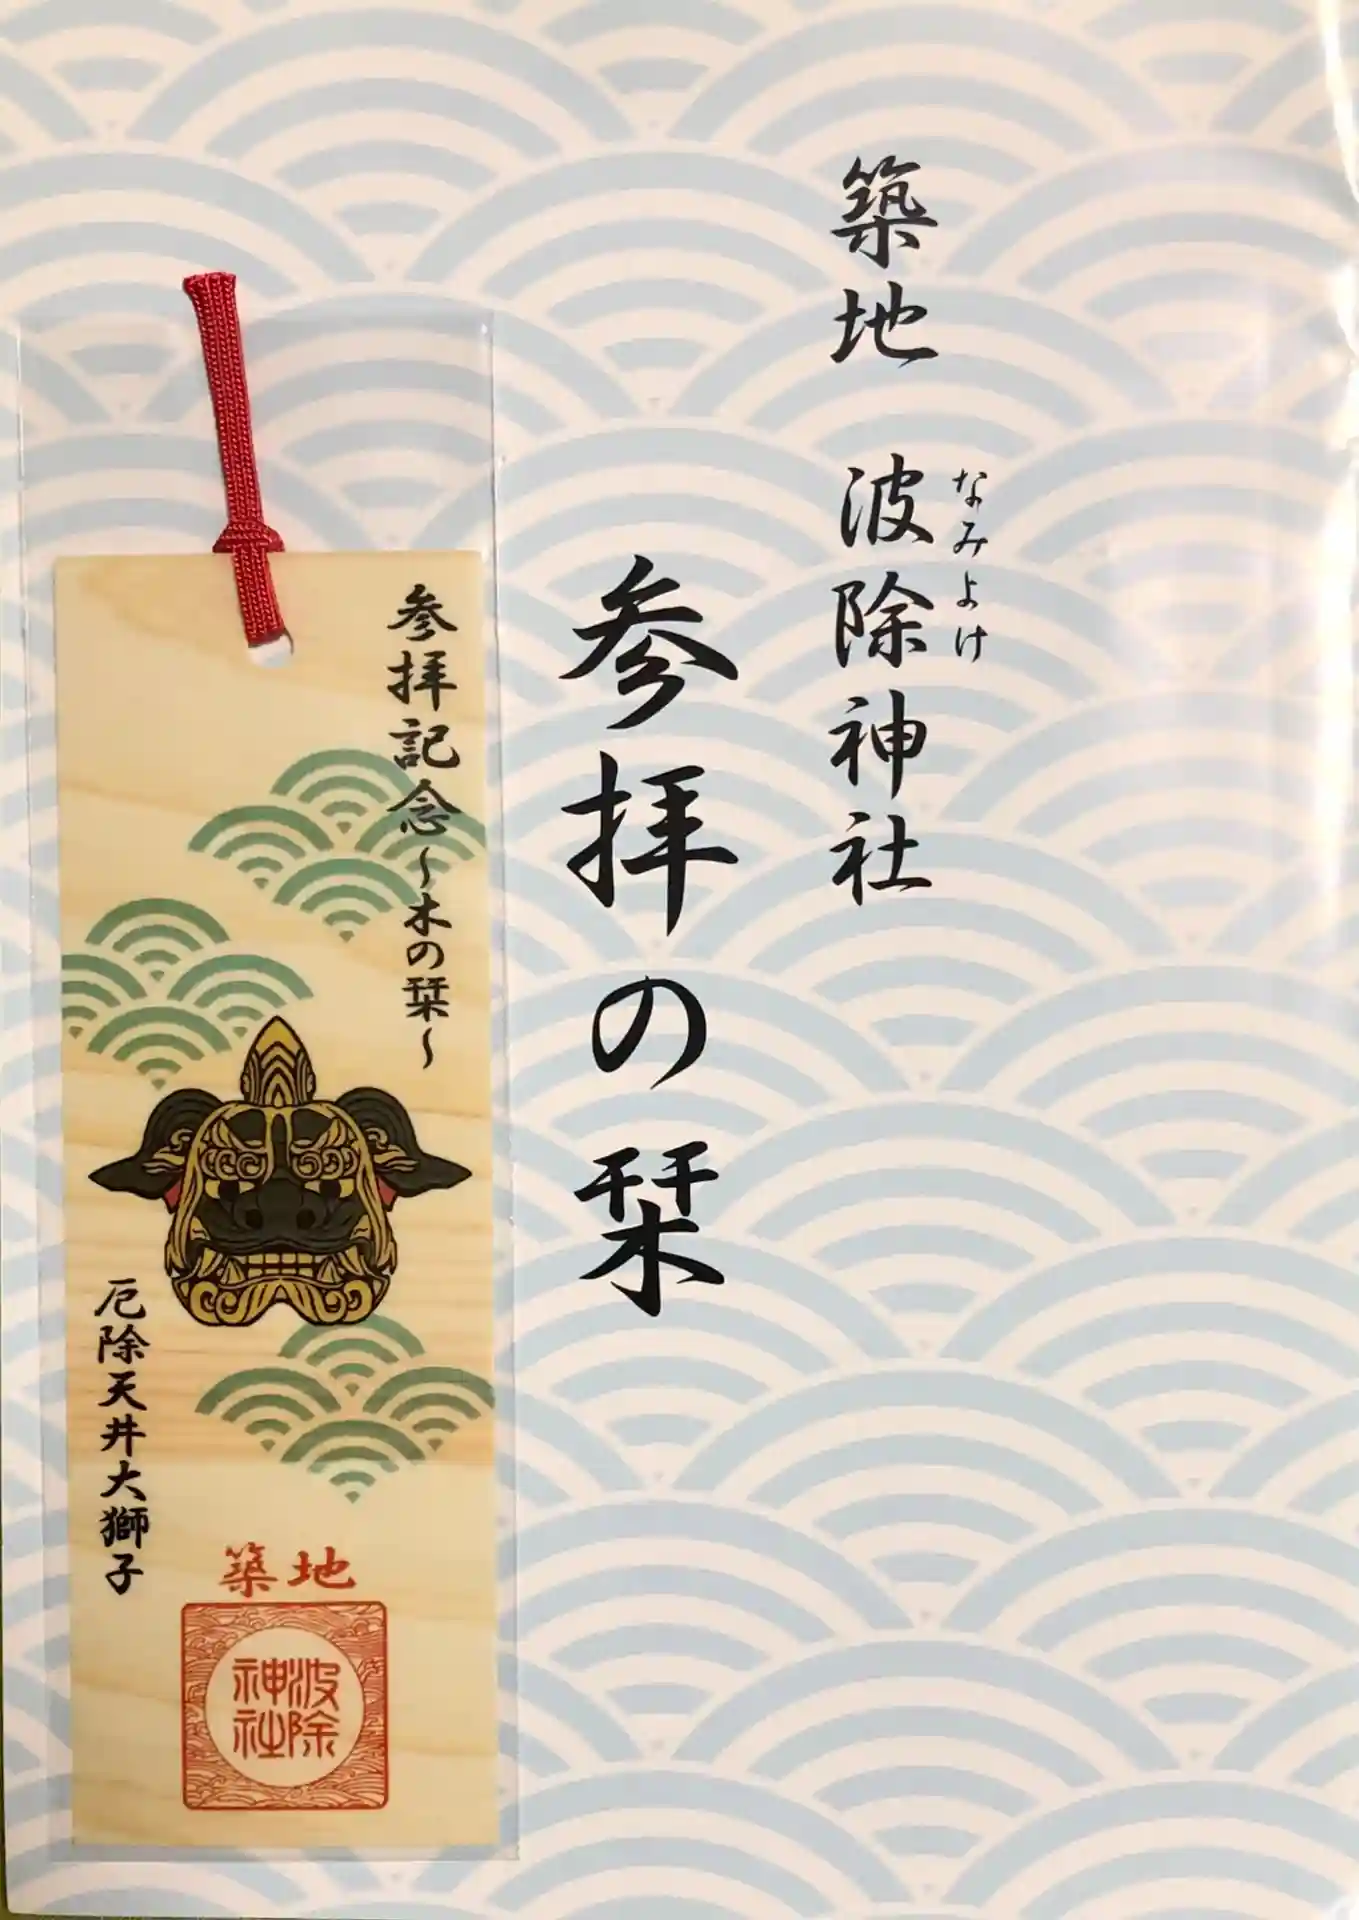 築地 波除神社
なみよけ
参拝の栞
参拝記念～木の栞～
厄除天井大獅子
築地
波除
神社